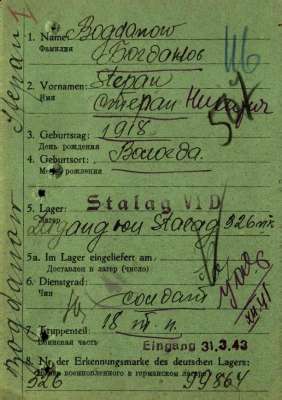 Bogdanow Stepan
1. Name: Bogdanow
Фамилия Богданов
Ш6
2. Vornamen: Stepan
Имя Степан
3. Geburtstag: 1918.
День рождения
4. Geburtsort: Вологда.
Место рождения
5. Lager: Stalag VI D
Лагерь Stalag 326
5a. Im Lager eingeliefert am
Доставлен в лагерь (число)
6. Dienstgrad:
Чин солдат
7. Truppenteil: 18
Воинская часть Eingang 31.3.43
8. Nr. der Erkennungsmarke des deutschen Lagers:
военнопленного в германском лагере
326 99864